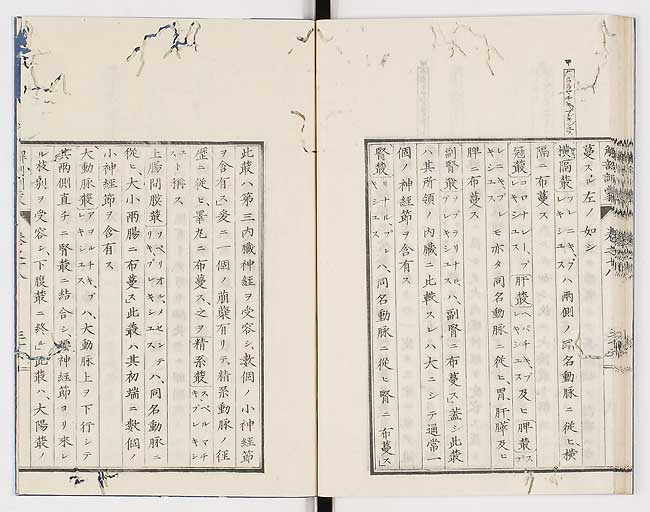 蔓スル左ノ如シ
横隔叢フレニキ、プレキシユスハ兩側ノ同名動脉ニ從ヒ、横
隔ニ布蔓ス
冠叢コロナレー、プレキシユス肝叢ヘパチキ、プレキシユス及ヒ脾叢スプレニキ、プレキシユス
モ亦タ同名動脉ニ從ヒ、胃、肝臓及ヒ
脾ニ布蔓ス
副腎叢ハ、副腎ニ布蔓ス」蓋シ此叢
ハ其所領ノ内臓ニ比較スレハ大ニシテ通常一
個ノ神經節ヲ含有ス
腎叢リナル、プレキシユスハ、同名動脉ニ從ヒ腎ニ布蔓ス」
此叢ハ第三内臓神經ヲ受容シ、數個ノ小神經節
ヲ含有ス」爰ニ一個ノ叢有リテ、精系動脉ノ径
歴ニ從ヒ、睾丸ニ布蔓ス、之ヲ精系叢スペルマチキ、プレキシユス
ト稱ス
上腸間膜叢シユペリオル、メセンテリキ、プレキシユスハ、同名動脉ニ
從ヒ、大小兩腸ニ布蔓ス」此叢ハ其初端ニ數個ノ
小神經節ヲ含有ス
大動脉叢アヲルチキ、プレキシユスハ、大動脉上ヲ下行シテ
其兩側直チニ腎叢ニ結合シ、神經節ヨリ來レ
ル枝別ヲ受容シ、下腹叢ニ終ル」此叢ハ、大陽叢ノ